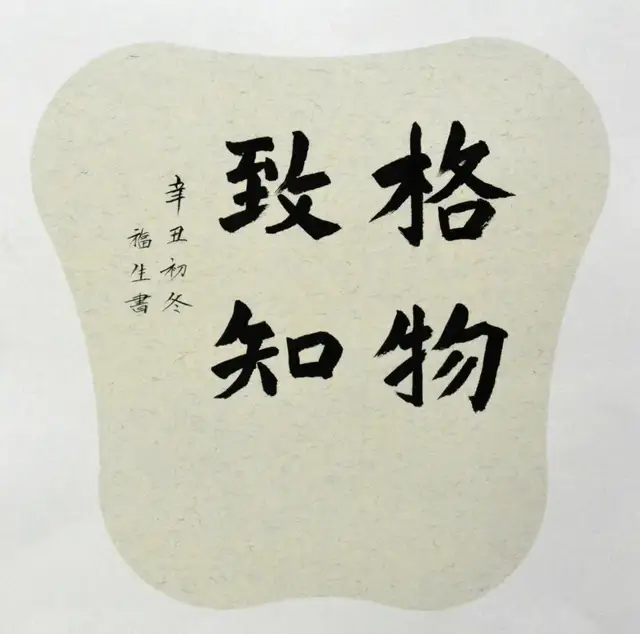 格物
致知
辛丑初冬
福生書